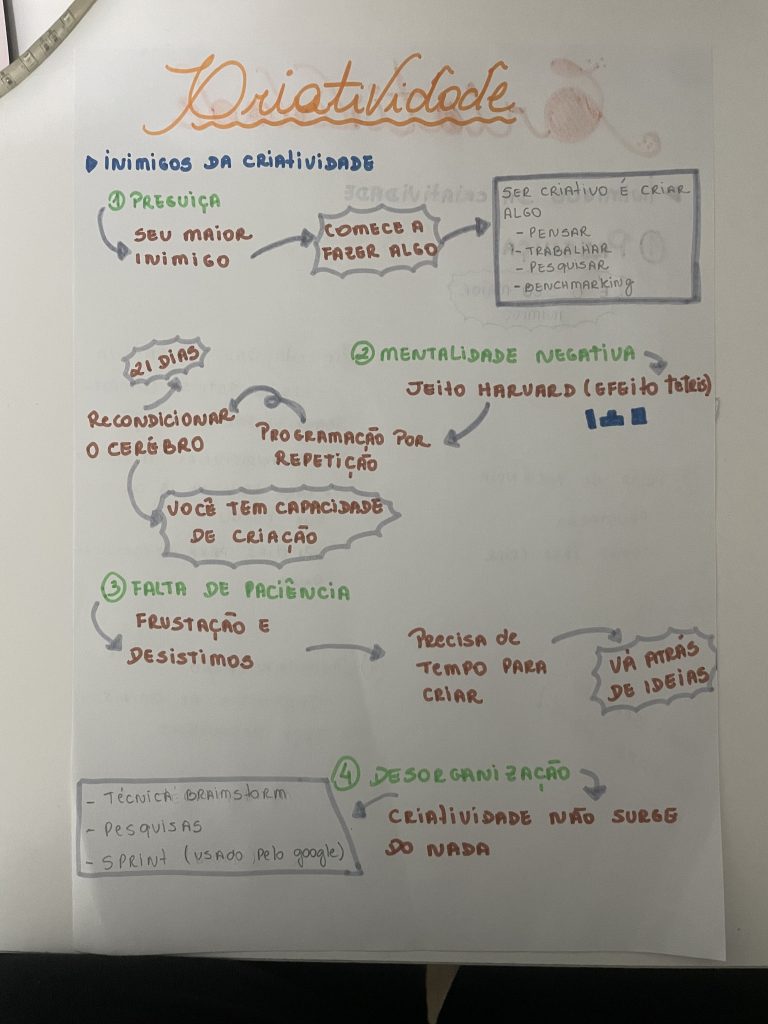 Criatividade
INIMIGOS DA CRIATIVIDADE
① PREGUIÇA
SEU MAIOR
INIMIGO
COMECE A
FAZER ALGO
SER CRIATIVO É CRIAR
ALGO
- PENSAR
- TRABALHAR
- PESQUISAR
- BENCHMARKING
② MENTALIDADE NEGATIVA
JEITO HARVARD (EFEITO TETRIS)
PROGRAMAÇÃO POR
REPETIÇÃO
RECONDICIONAR
O CERÉBRO
21 DIAS
VOCÊ TEM CAPACIDADE
DE CRIAÇÃO
③ FALTA DE PACIÊNCIA
FRUSTAÇÃO E
DESISTIMOS
PRECISA DE
TEMPO PARA
CRIAR
VÁ ATRÁS
DE IDEIAS
④ DESORGANIZAÇÃO
CRIATIVIDADE NÃO SURGE
DO NADA
- TÉCNICA BRAIMSTORM
- PESQUISAS
- SPRINT (USADO PELO GOOGLE)